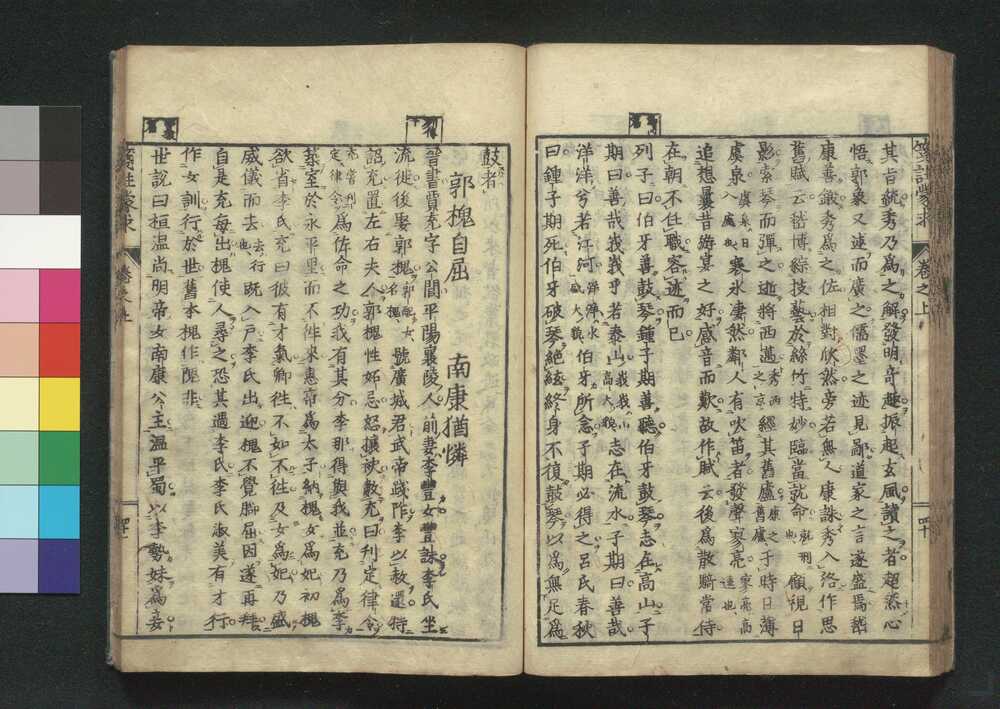 箋註蒙求 卷之上 四十
其旨統秀乃爲之解發明奇趣振起玄風讀之者超然心
悟郭象又述而廣之儒墨之迹見鄙道家之言遂盛焉嵆
康善鍛秀爲之佐相對欣然旁若無人康誅秀入洛作思
舊賦云嵆博綜技藝於絲竹特妙臨當就命顧視日
影索琴而彈之逝將西邁經其舊廬于時日薄
虞泉寒氷凄然鄰人有吹笛者發聲寥亮
追想曩昔游宴之好感音而歎故作賦云後爲散騎常侍
在朝不任職容迹而已
列子曰伯牙善鼓琴鍾子期善聽伯牙鼓琴志在高山子
期曰善哉峩峩乎若泰山志在流水子期曰善哉
洋洋兮若江河伯牙所念子期必得之呂氏春秋
曰鍾子期死伯牙破琴絶絃終身不復鼓琴以爲無足爲
鼓者
郭槐自屈 南康猶憐
晉書賈充字公閭平陽襄陵人前妻李豐女豐誅李氏坐
流徙後娶郭槐號廣城君武帝踐阼李以赦還特
詔充置左右夫人郭槐性妬忌怒攘袂數充曰刋定律令
爲佐命之功我有其分李那得與我並充乃爲李
築室於永平里而不徃來惠帝爲太子納槐女爲妃初槐
欲省李氏充曰彼有才氣卿徃不如不徃及女爲妃乃盛
威儀而去既入戸李氏出迎槐不覺脚屈因遂再拜
自是充每出槐使人尋之恐其過李氏李氏淑美有才行
作女訓行於世舊本槐作隗非
世說曰桓温尚明帝女南康公主温平蜀以李勢妹爲妾
箋註蒙求 卷之上